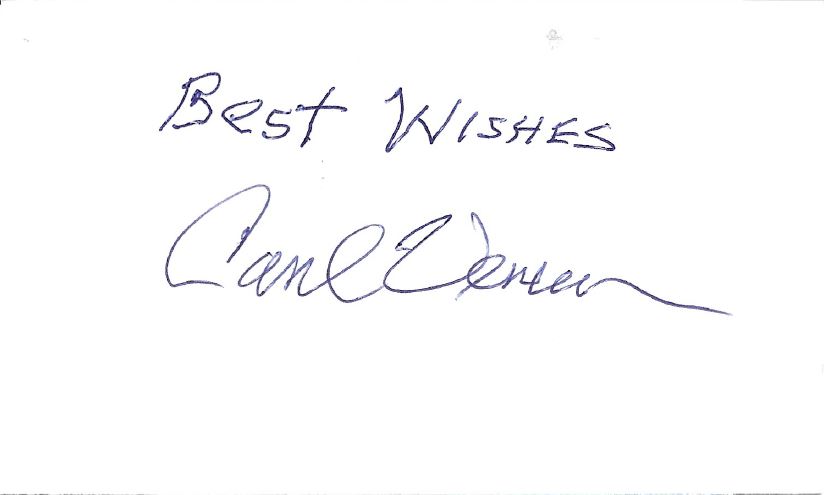 Best Wishes
Carl